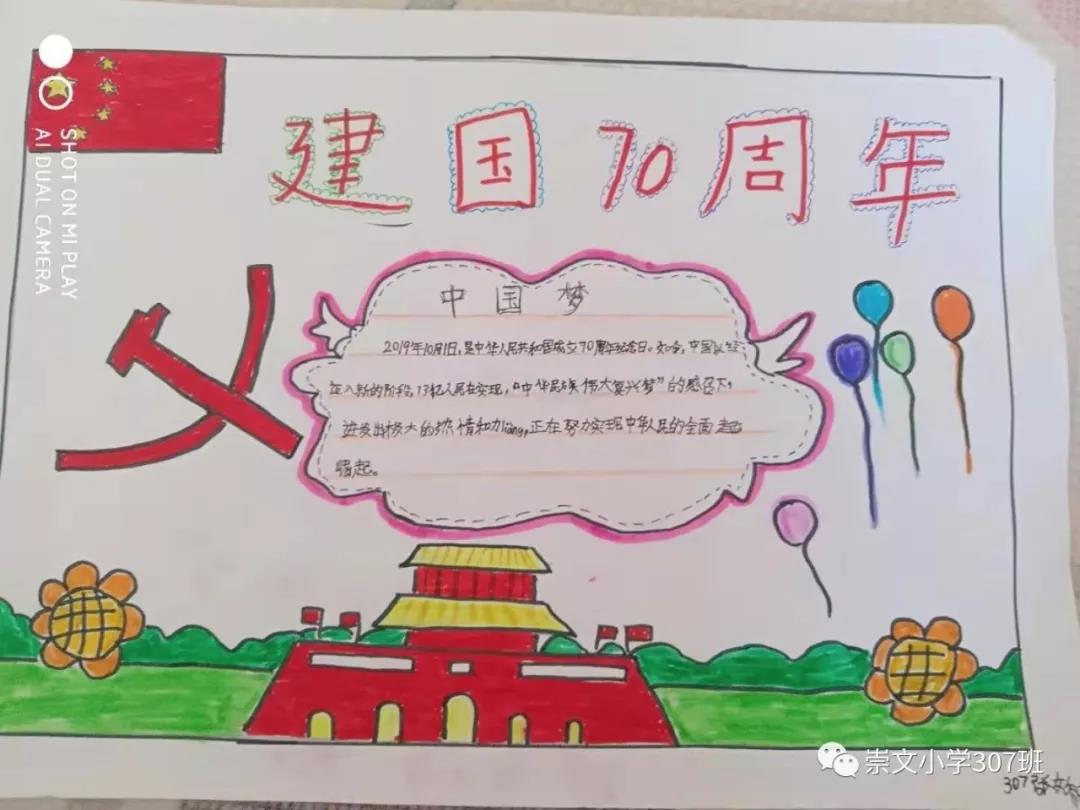 建国70周年
SHOT ON MI PLAY
AI DUAL CAMERA
中国梦
2019年10月1日,是中华人民共和国成立70周年纪念日。如今,中国以经
正入新的阶段,13亿人民在实现,“中华民族伟大复兴梦”的感召下,
迸发出极大的热情和力liang,正在努力实现中华民的全面起
崛起。
崇文小学307班
307